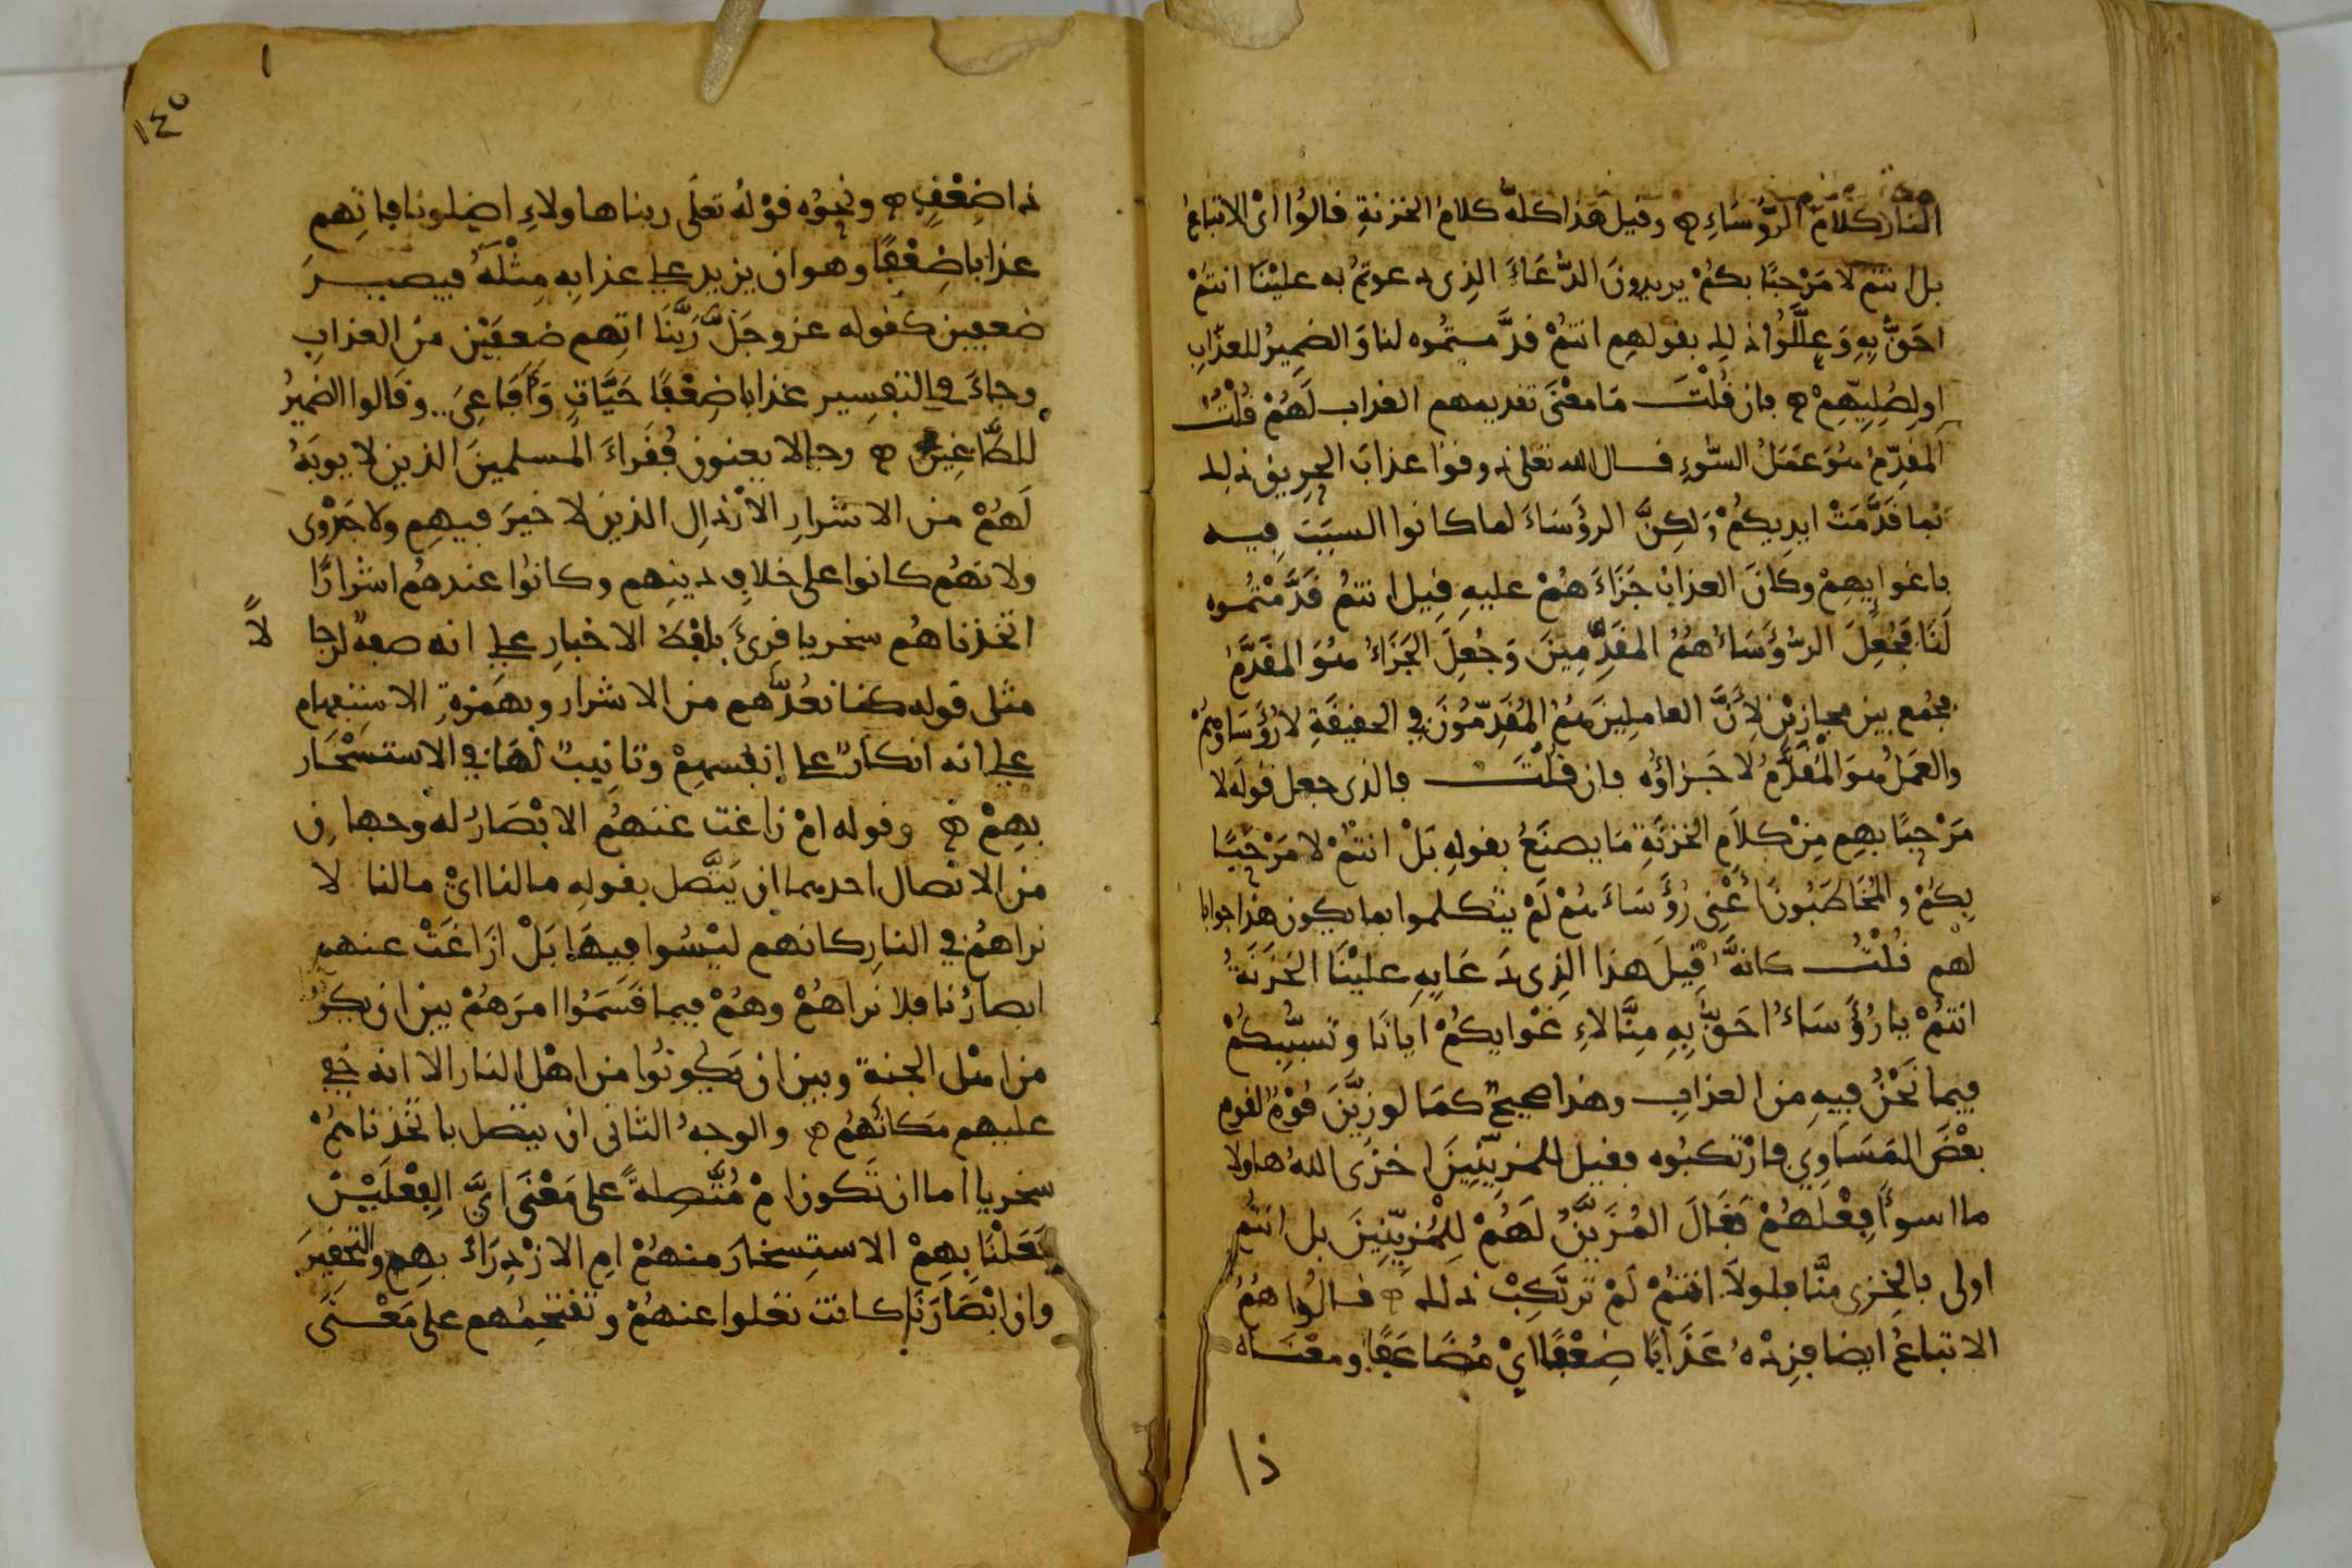 النار كلام الرؤساء وقيل هذا كله كلام الخزنة قالوا اي الاتباع
بل انتم لا مرحبا بكم يريدون الدعاء الذي دعوتم به علينا انتم
احق به وعللوا ذلك بقولهم انتم قدمتموه لنا والضمير للعذاب
او لصليهم فان قلت ما معنى تقديمهم العذاب لهم قلت
المقدم هو عمل السوء قال الله تعلى ذوقوا عذاب الحريق ذلك
بما قدمت ايديكم ولكن الرؤساء لما كانوا السبب فيه
باغوايهم وكان العذاب جزاءهم عليه قيل انتم قدمتموه
لنا فجعل الرؤساء هم المقدمين وجعل الجزاء هو المقدم
فجمع بين مجازين لان العاملين هم المقدمون في الحقيقة لا رؤساوهم
والعمل هو المقدم لا جزاؤه فان قلت فالذي جعل قوله لا
مرحبا بهم من كلام الخزنة ما يصنع بقوله بل انتم لا مرحبا
بكم والمخاطبون اعني رؤساءهم لم يتكلموا بما يكون هذا جوابا
لهم قلت كانه قيل هذا الذي دعا به علينا الخزنة
انتم يا رؤساء احق به منا لاغوايكم ايانا وتسببكم
فيما نحن فيه من العذاب وهذا صحيح كما لو زين قوم لقوم
بعض المساوي فارتكبوه فقيل للمزينين اخزى الله هاولا
ما اسوأ فعلهم فقال المزين لهم للمزينين بل انتم
اولى بالخزي منا فلولا انتم لم نرتكب ذلك قالوا هم
الاتباع ايضا فزده عذابا ضعفا اي مضاعفا ومعناه
ذا
١٤٥
ذا ضعف ونحوه قوله تعلى ربنا هاولاء اضلونا فاتهم
عذابا ضعفا وهو ان يزيد على عذابه مثله فيصير
ضعفين كقوله عز وجل ربنا اتهم ضعفين من العذاب
وجاء في التفسير عذابا ضعفا حيات وافاعي وقالوا الضمير
للطاغين رجالا يعنون فقراء المسلمين الذين لا يوبه
لهم من الاشرار الارذال الذين لا خير فيهم ولا جدوى
ولانهم كانوا على خلاف دينهم وكانوا عندهم اشرارا
اتخذناهم سخريا قرئ بلفظ الاخبار على انه صفة لرجا لا
مثل قوله كنا نعدهم من الاشرار وبهمزة الاستفهام
على انه انكار على انفسهم وتانيب لها في الاستسخار
بهم وقوله ام زاغت عنهم الابصار له وجهان
من الاتصال احدهما ان يتصل بقوله ما لنا اي ما لنا لا
نراهم في النار كانهم ليسوا فيها بل ازاغت عنهم
ابصارنا فلا نراهم وهم فيها قسموا امرهم بين ان يكونوا
من اهل الجنة وبين ان يكونوا من اهل النار الا انه خفي
عليهم مكانهم والوجه الثاني ان يتصل باتخذناهم
سخريا اما ان تكون ام متصلة على معنى اي الفعلين
فعلنا بهم الاستسخار منهم ام الازدراء بهم والتحقير
وان ابصارنا كانت تعلوا عنهم وتقتحمهم على معنى